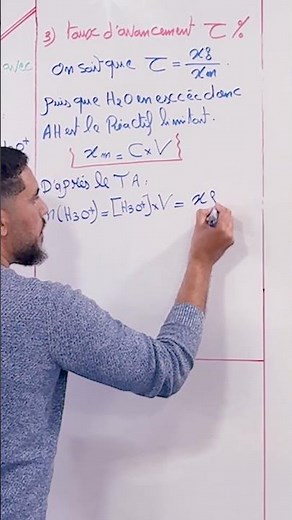 3) taux d'avancement τ %
avec
On sait que τ = xf/xm.
puis que H2O en excée donc
AH est le Réactif limitant.
xm = C×V
D'après le TA:
n(H3O+) = [H3O+]×V = xf